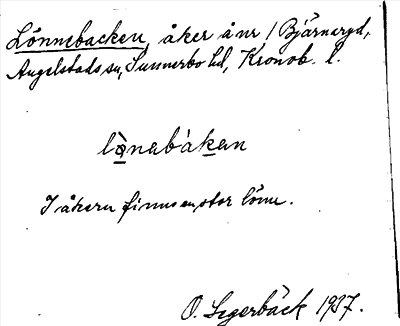 Lönnebacken, åker å nr 1 Bjärnaryd,
Angelstads sn, Sunnerbo hd, Kronob. l.
lò̱nabàḵan
I åkern finns en stor lönn.
O. Segerbäck 1937.